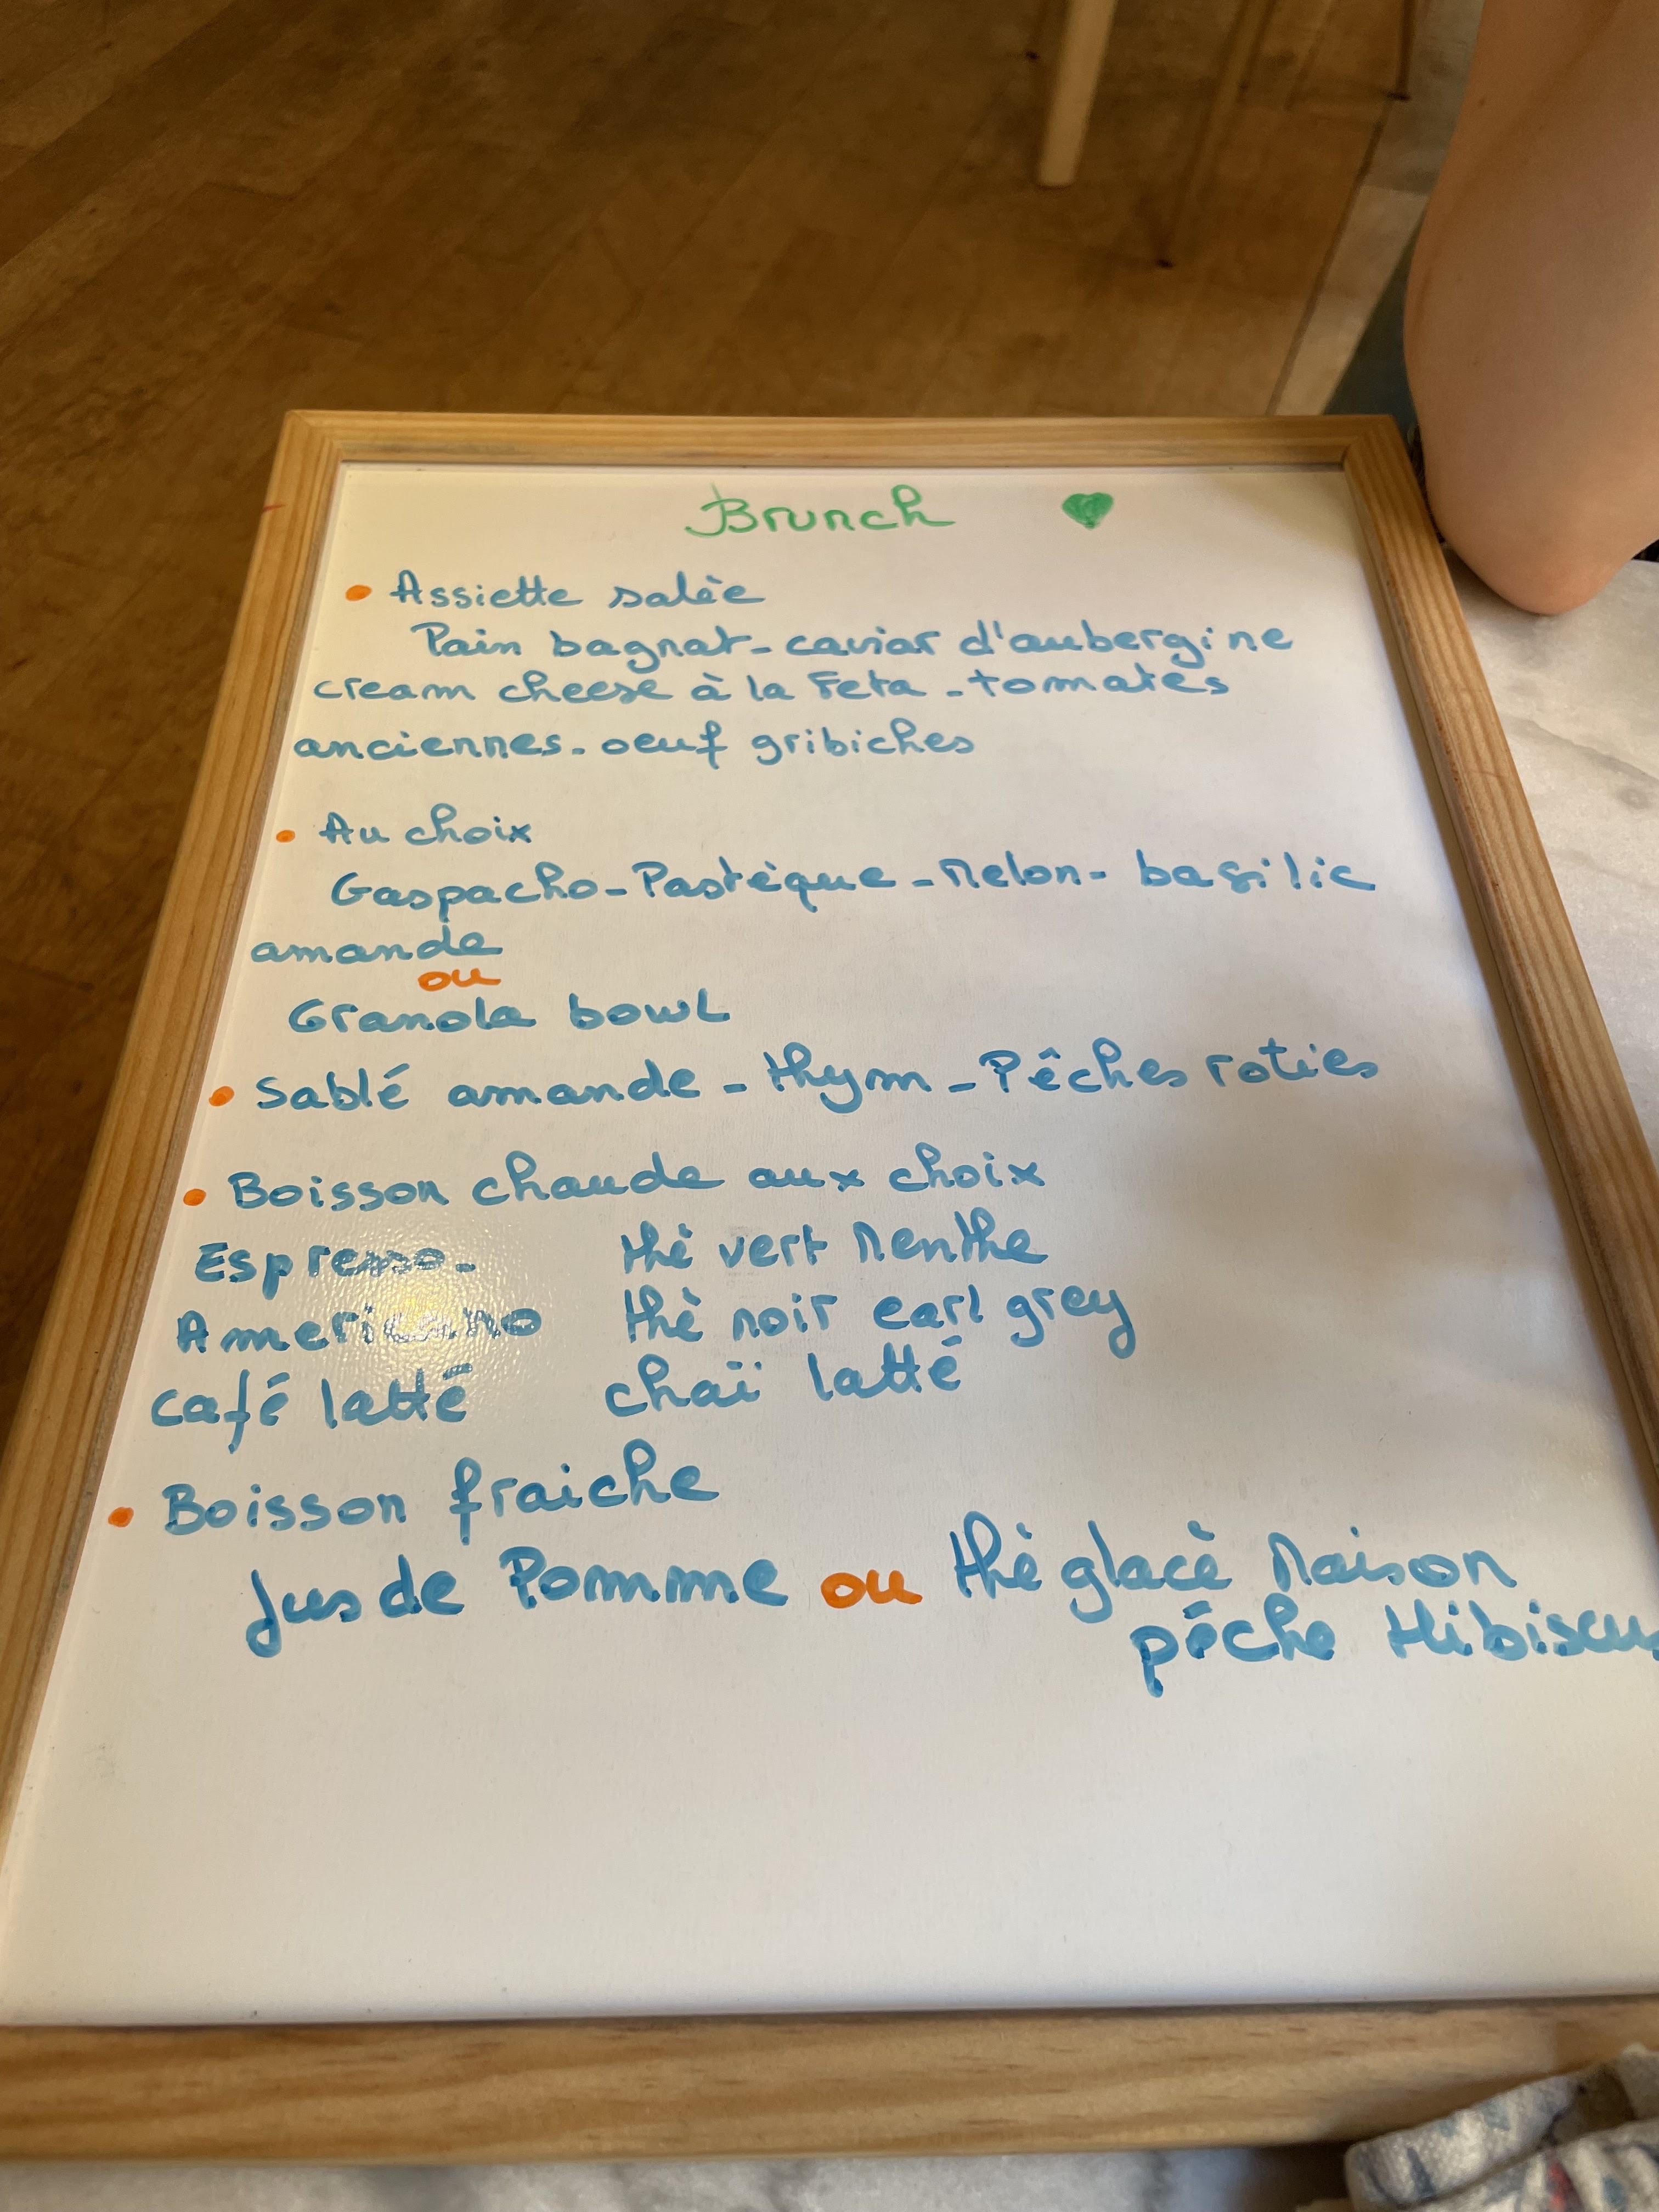 Brunch
• Assiette salée
Pain bagnat - caviar d'aubergine
cream cheese à la Feta - tomates
anciennes - oeuf gribiches
• Au choix
Gaspacho - Pastèque - Melon - basilic
amande
ou
Granola bowl
• Sablé amande - thym - Pêches roties
• Boisson chaude aux choix
Espresso - thé vert Menthe
Americano thé noir earl grey
Café latté chaï latté
• Boisson fraiche
Jus de Pomme ou thé glacé Maison
pêche Hibiscus